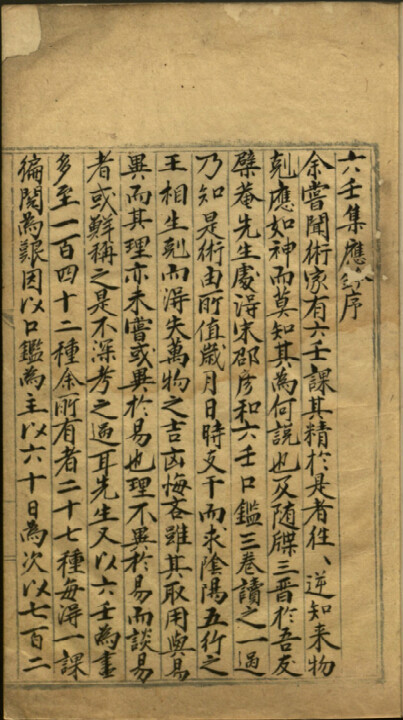 六壬集應鈐序
余嘗聞術家有六壬課其精於是者往〻逆知来物
剋應如神而莫知其為何説也及随牒三晋於吾友
檗菴先生處淂宋邵彦和六壬口鑑三卷讀之一過
乃知是術由所值歲月日時支干而求陰陽五行之
王相生剋而淂失萬物之吉凶悔吝雖其取用與易
異而其理亦未嘗或異於易也理不異於易而談易
者或鮮稱之是不深考之過耳先生又以六壬為書
多至一百四十二種余所有者二十七種每淂一課
徧閱為艱因以口鑑為主以六十日為次以七百二